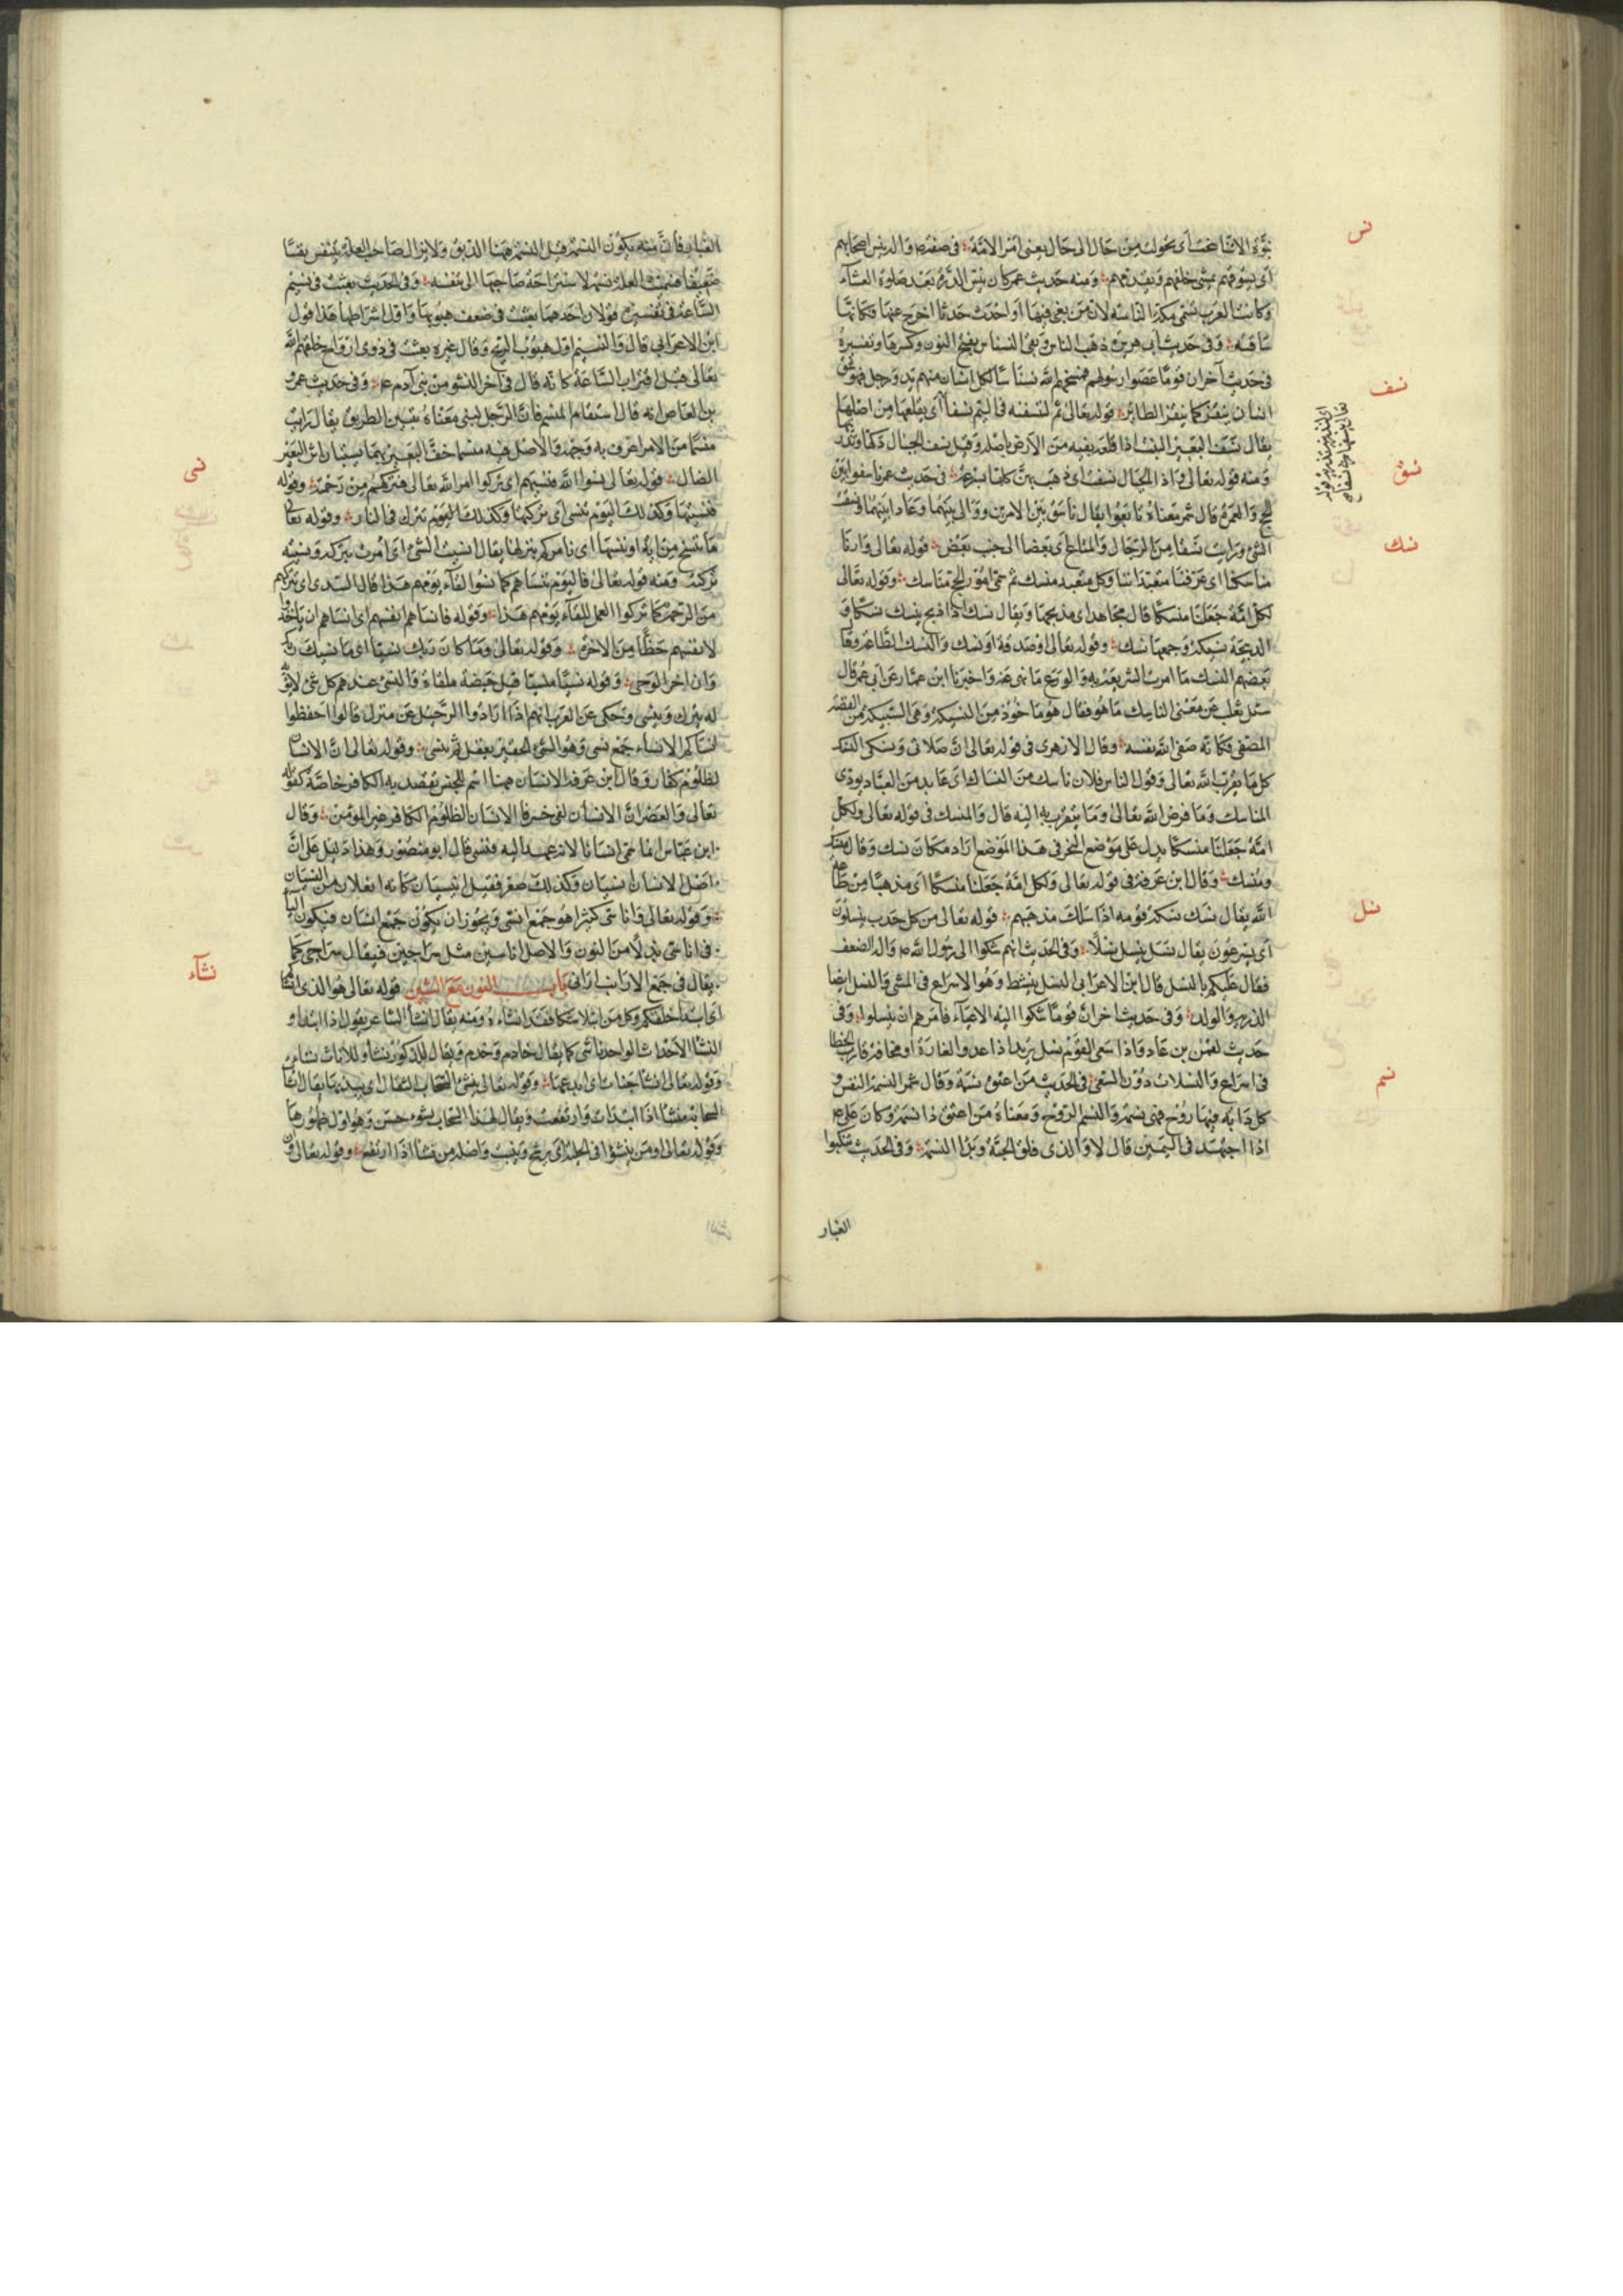 نس
نبوة الا تناسخت أى تحولت من حال الى حال يعنى امر الامة فى صفته صم والد ينس اصحابه
أى يسوقهم يمشى خلفهم ويقدمهم ومنه حديث عمر كان ينس الناس بعد صلوة العشآء
وكانت العرب تسمى مكة الناسة لان من بغى فيها أو احدث حدثا اخرج عنها فكانها
ساقته وفى حديث أبى هريرة ذهب الناس وبقى النسناس بفتح النون وكسرها وتفسيره
فى حديث آخر ان قوما عصوا رسولهم فمسخهم الله نسناسا لكل انسان منهم يد ورجل
نسف
انسان ينقز كما ينقز الطائر قوله تعالى ثم لننسفنه فى اليم نسفا أى يقلعها من اصلها
يقال نسف البعير النبت اذا قلعه بفيه من الأرض باصله وقيل نسف الجبال دكها
ومنه قوله تعالى واذا الجبال نسفت أى ذهب بها كلها بسرعة
نسق
فى حديث عمر ناسقوا بين
الحج والعمرة قال شمر معناه تابعوا يقال ناسق بين الامرين ووالى بينهما وعادا بينهما ونسقت
الشئ ورأيت نسقا من الرجال والمتاع أى بعضها الى جنب بعض
نسك
قوله تعالى وأرنا
مناسكنا أى عرفنا متعبداتنا وكل متعبد منسك ثم سمى امور الحج مناسك وقوله تعالى
لكل امة جعلنا منسكا قال مجاهد أى مذبحا ويقال نسك اذا ذبح ينسك نسكا و
الذبيحة نسيكة وجمعها نسك وقوله تعالى أو صدقة أو نسك والنسك الطاعة وقال
بعضهم النسك ما امرت الشريعة به والورع ما نهى عنه وأخبرنا ابن عمار عن أبى عمر قال
سئل ثعلب عن معنى الناسك ما هو فقال هو ماخوذ من النسيكة وهى السبيكة من الفضة
المصفى فكانه صفى لله نفسه وقال الازهرى فى قوله تعالى ان صلاتى ونسكى النسك
كل ما يقرب الى الله تعالى وقول الناس فلان ناسك من النساك أى عابد من العباد يودى
المناسك وما فرض الله تعالى وما يتقرب به اليه قال والمنسك فى قوله تعالى ولكل
امة جعلنا منسكا يدل على موضع النحر فى هذا الموضع اراد مكان نسك وقال منسك
ومنسك وقال ابن عرفة فى قوله تعالى ولكل امة جعلنا منسكا أى مذهبا من طاعة
الله يقال نسك نسك قومه اذا سلك مذهبهم
نسل
قوله تعالى من كل حدب ينسلون
أى يسرعون يقال نسل ينسل نسلا وفى الحديث انهم شكوا الى رسول الله صم والد الضعف
فقال عليكم بالنسل قال ابن الاعرابى النسل ينشط وهو الاسراع فى المشى والنسل ايضا
الذرية والولد وفى حديث اخر ان قوما شكوا اليه الاعيآء فامرهم ان ينسلوا وفى
حديث لقمن بن عاد واذا سعى القوم نسل يريد اذا عدوا لغارة أو مخافة قارب الخطا
فى اسراع والنسلان دون السعى
نسم
فى الحديث من اعتق نسمة وقال شمر النسمة النفس و
كل دابة فيها روح فهى نسمة والنسم الروح ومعناه من اعتق ذا نسمة وكان على عم
اذا اجتهد فى اليمين قال لا والذى فلق الحبة وبرا النسمة وفى الحديث تنكبوا
الغبار
الغبار فان منه يكون النسمة قيل النسمة ههنا الربو ولا يزال صاحب العلة يتنفس نفسا
ضعيفا فسميت العلة نسمة لاستراحة صاحبها الى تنفسه وفى الحديث بعثت فى نسيم
الساعة فى تفسيره قولان احدهما بعثت فى ضعف هبوبها واول اشراطها هذا قول
ابن الاعرابى قال والنسيم اول هبوب الريح وقال غيره بعثت فى ذوى ارواح خلقهم الله
تعالى قبل اقتراب الساعة كانه قال فى آخر النشو من بنى آدم عم وفى حديث عمرو
بن العاص انه قال استقام المنسم فان الرجل لنبى معناه تبين الطريق يقال رأيت
منسما من الامر اعرف به وجهه والأصل فيه منسما خف البعير بهما يستبان اثر البعير
نسى
الضال قوله تعالى نسوا الله فنسيهم أى تركوا امر الله تعالى فتركهم من رحمته وقوله
فنسيتها وكذلك اليوم تنسى أى تركتها وكذلك اليوم تترك فى النار وقوله تعالى
ما ننسخ من آية أو ننسها أى نامركم بتركها يقال انسيت الشئ أى امرت بتركه ونسيته
تركته ومنه قوله تعالى فاليوم ننساهم كما نسوا لقآء يومهم هذا قال السدى أى نتركهم
من الرحمة كما تركوا العمل للقآء يومهم هذا وقوله فانساهم انفسهم أى انساهم ان ياخذوا
لانفسهم حظا من الاخرة وقوله تعالى وما كان ربك نسيا أى ما نسيك ربك
وان اخر الوحى وقوله نسيا منسيا قيل حيضة ملقاة والنسى عندهم كل شئ لا يؤبه
له يترك وينسى وتحكى عن العرب انهم اذا ارادوا الرحيل عن منزل قالوا احفظوا
انساكم الانساء جمع نسى وهو الشئ الحقير يغفل ثم ينسى وقوله تعالى ان الانسان
لظلوم كفار وقال ابن عرفة الانسان ههنا اسم للجنس يقصد به الكافر خاصة كقوله
تعالى والعصر ان الانسان لفى خسر فالانسان الظلوم الكافر غير المؤمن وقال
ابن عباس انما سمى انسانا لانه عهد اليه فنسى قال أبو منصور وهذا دليل على ان
اصل الانسان انسيان وكذلك صغر فقيل انيسيان كانه افعلان من النسيان
وقوله تعالى واناسى كثيرا هو جمع انسى ويجوز ان يكون جمع انسان فيكون اليآ
فى اناسى بدلا من النون والاصل اناسين مثل سراحين فيقال سراحى كما
نشآء
يقال فى جمع الارانب ارانى باب النون مع الشين قوله تعالى هو الذى انشأ
أى ابتدأ خلقكم وكل من ابتدأ شيئا فقد انشاءه ومنه يقال انشأ الشاعر يقول اذا ابتدأ و
النشأ الأحداث الواحد ناشئ كما يقال خادم وخدم ويقال للذكور نشأ وللاناث نشأ
وقوله تعالى انشأ جنات أى ابدعها وقوله تعالى ينشئ السحاب الثقال أى يبديها يقال انشأت
السحابة منشأ اذا ابتدأت وارتفعت ويقال لهذا السحاب نشوء حسن وهو اول ظهورها
وقوله تعالى أو من ينشؤا فى الحلية أى يربح وينبت واصله من نشأ اذا ارتفع وقوله تعالى